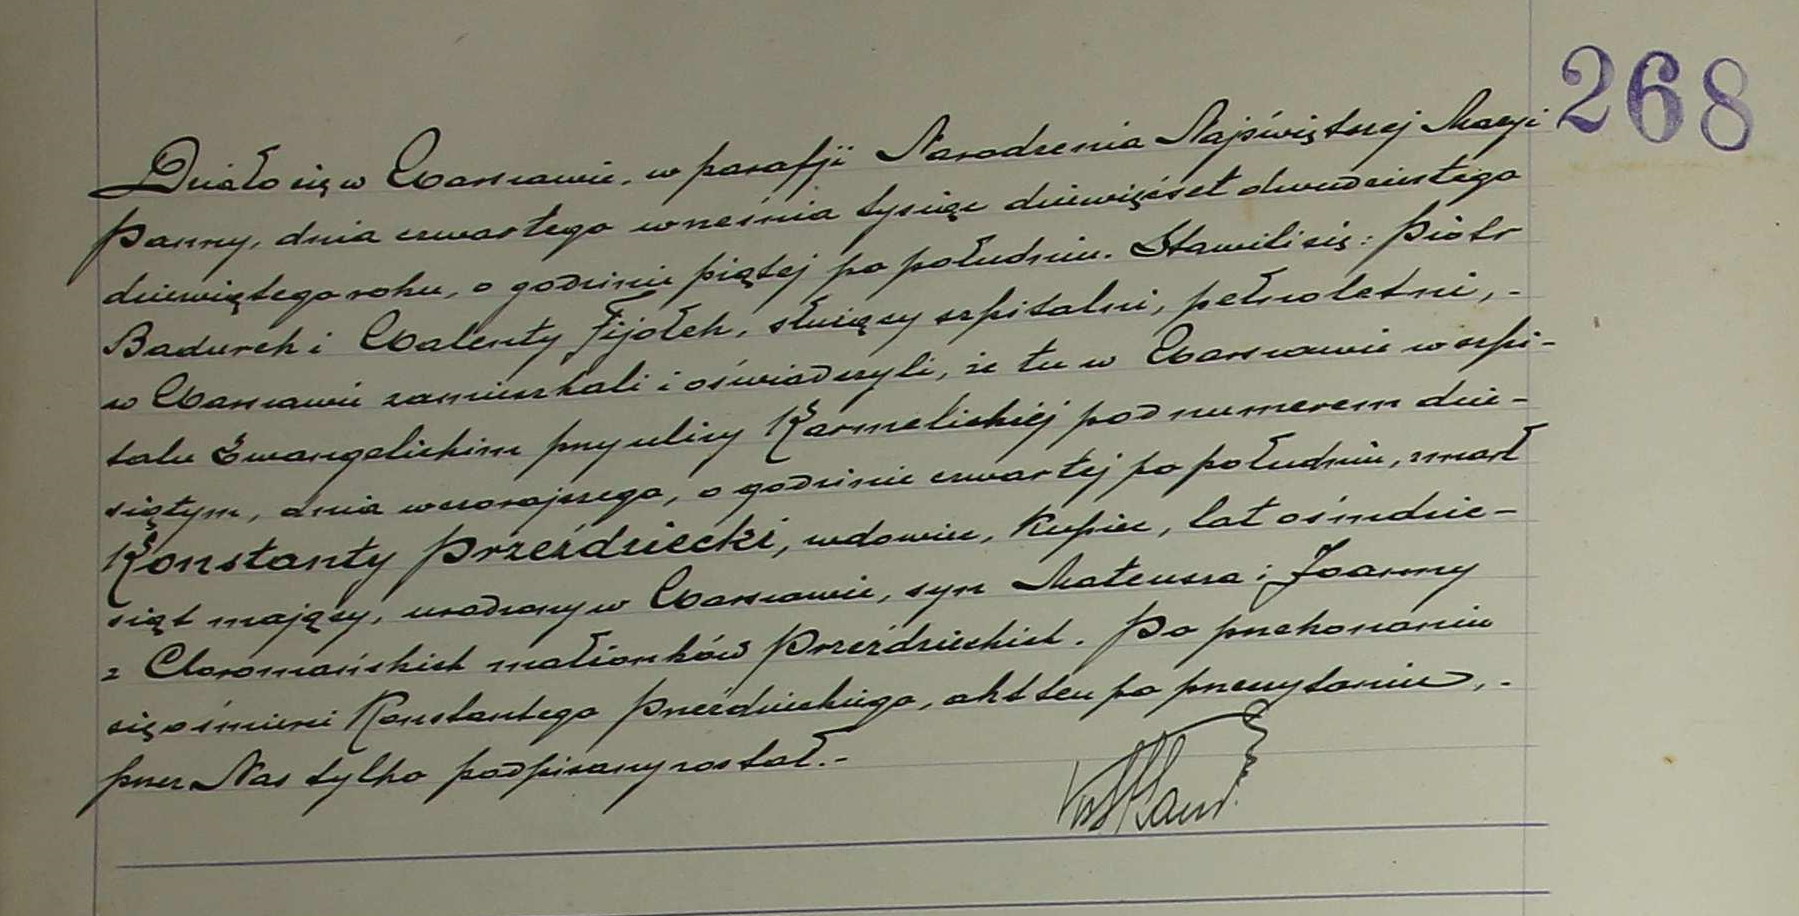 268
Działo się w Warszawie, w parafji Narodzenia Najświętszej Maryi
Panny, dnia czwartego września tysiąc dziewięćset dwudziestego
dziewiątego roku, o godzinie piątej po południu. Stawili się: Piotr
Badurek i Walenty Fijołek, służący szpitalni, pełnoletni, -
w Warszawie zamieszkali i oświadczyli, że tu w Warszawie w szpi-
talu Ewangelickim przy ulicy Karmelickiej pod numerem dzie-
siątym, dnia wczorajszego, o godzinie czwartej po południu, zmarł
Konstanty Przeździecki, wdowiec, kupiec, lat ośmdzie-
siąt mający, urodzony w Warszawie, syn Mateusza i Joanny
z Choromańskich małżonków Przeździeckich. Po przekonaniu
się o śmierci Konstantego Przeździeckiego, akt ten po przeczytaniu, -
przez Nas tylko podpisany został. -